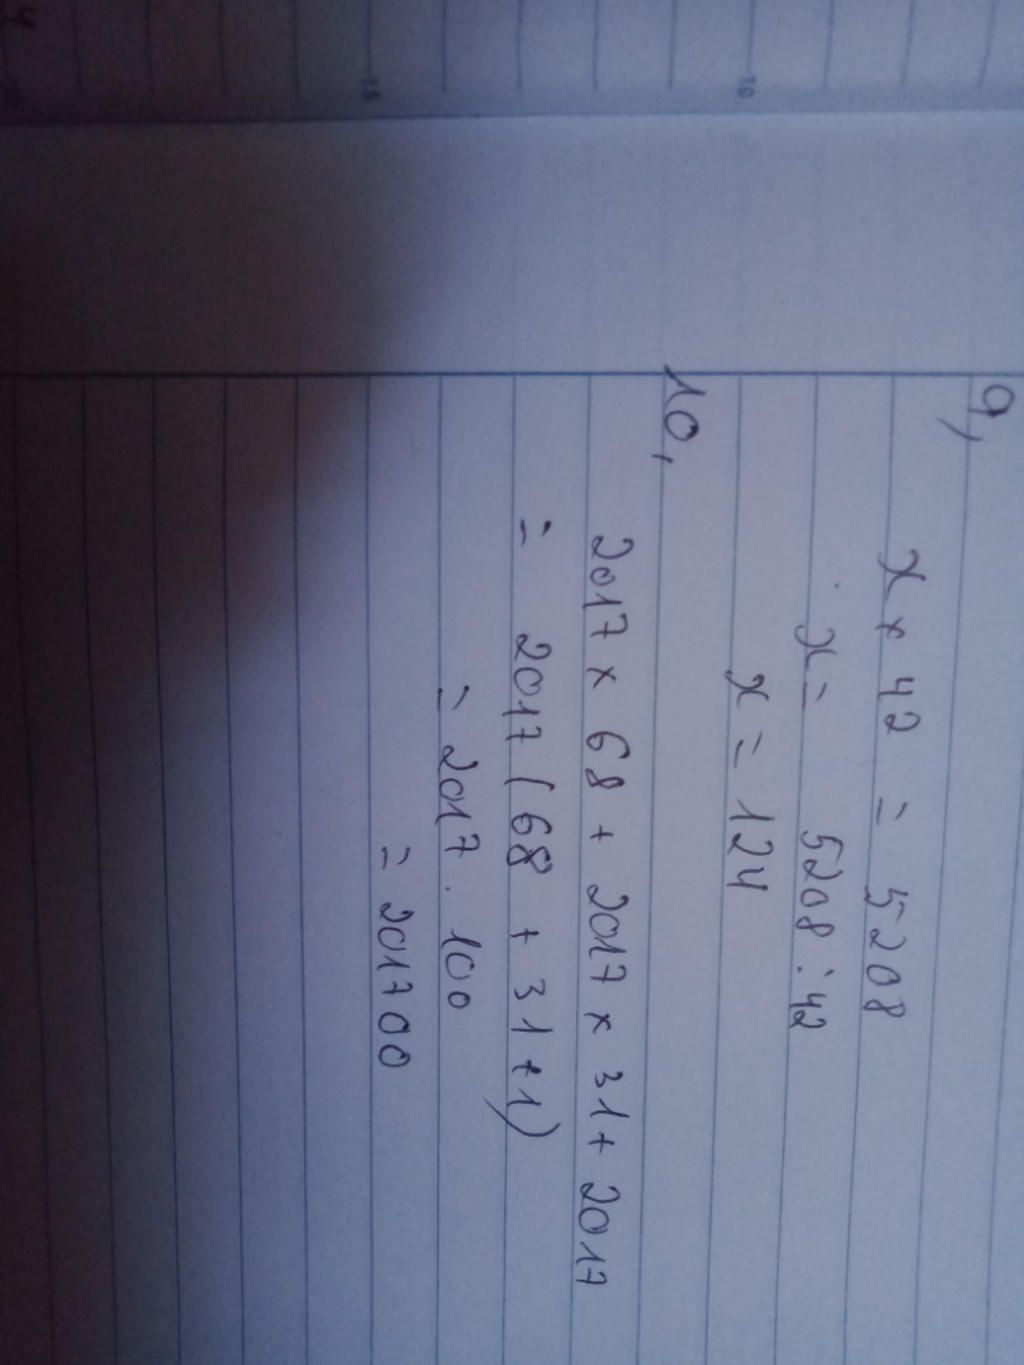 9,
x × 42 = 5208
x = 5208 : 42
x = 124
10,
2017 × 68 + 2017 × 31 + 2017
= 2017 ( 68 + 31 + 1)
= 2017 . 100
= 201700
10
15